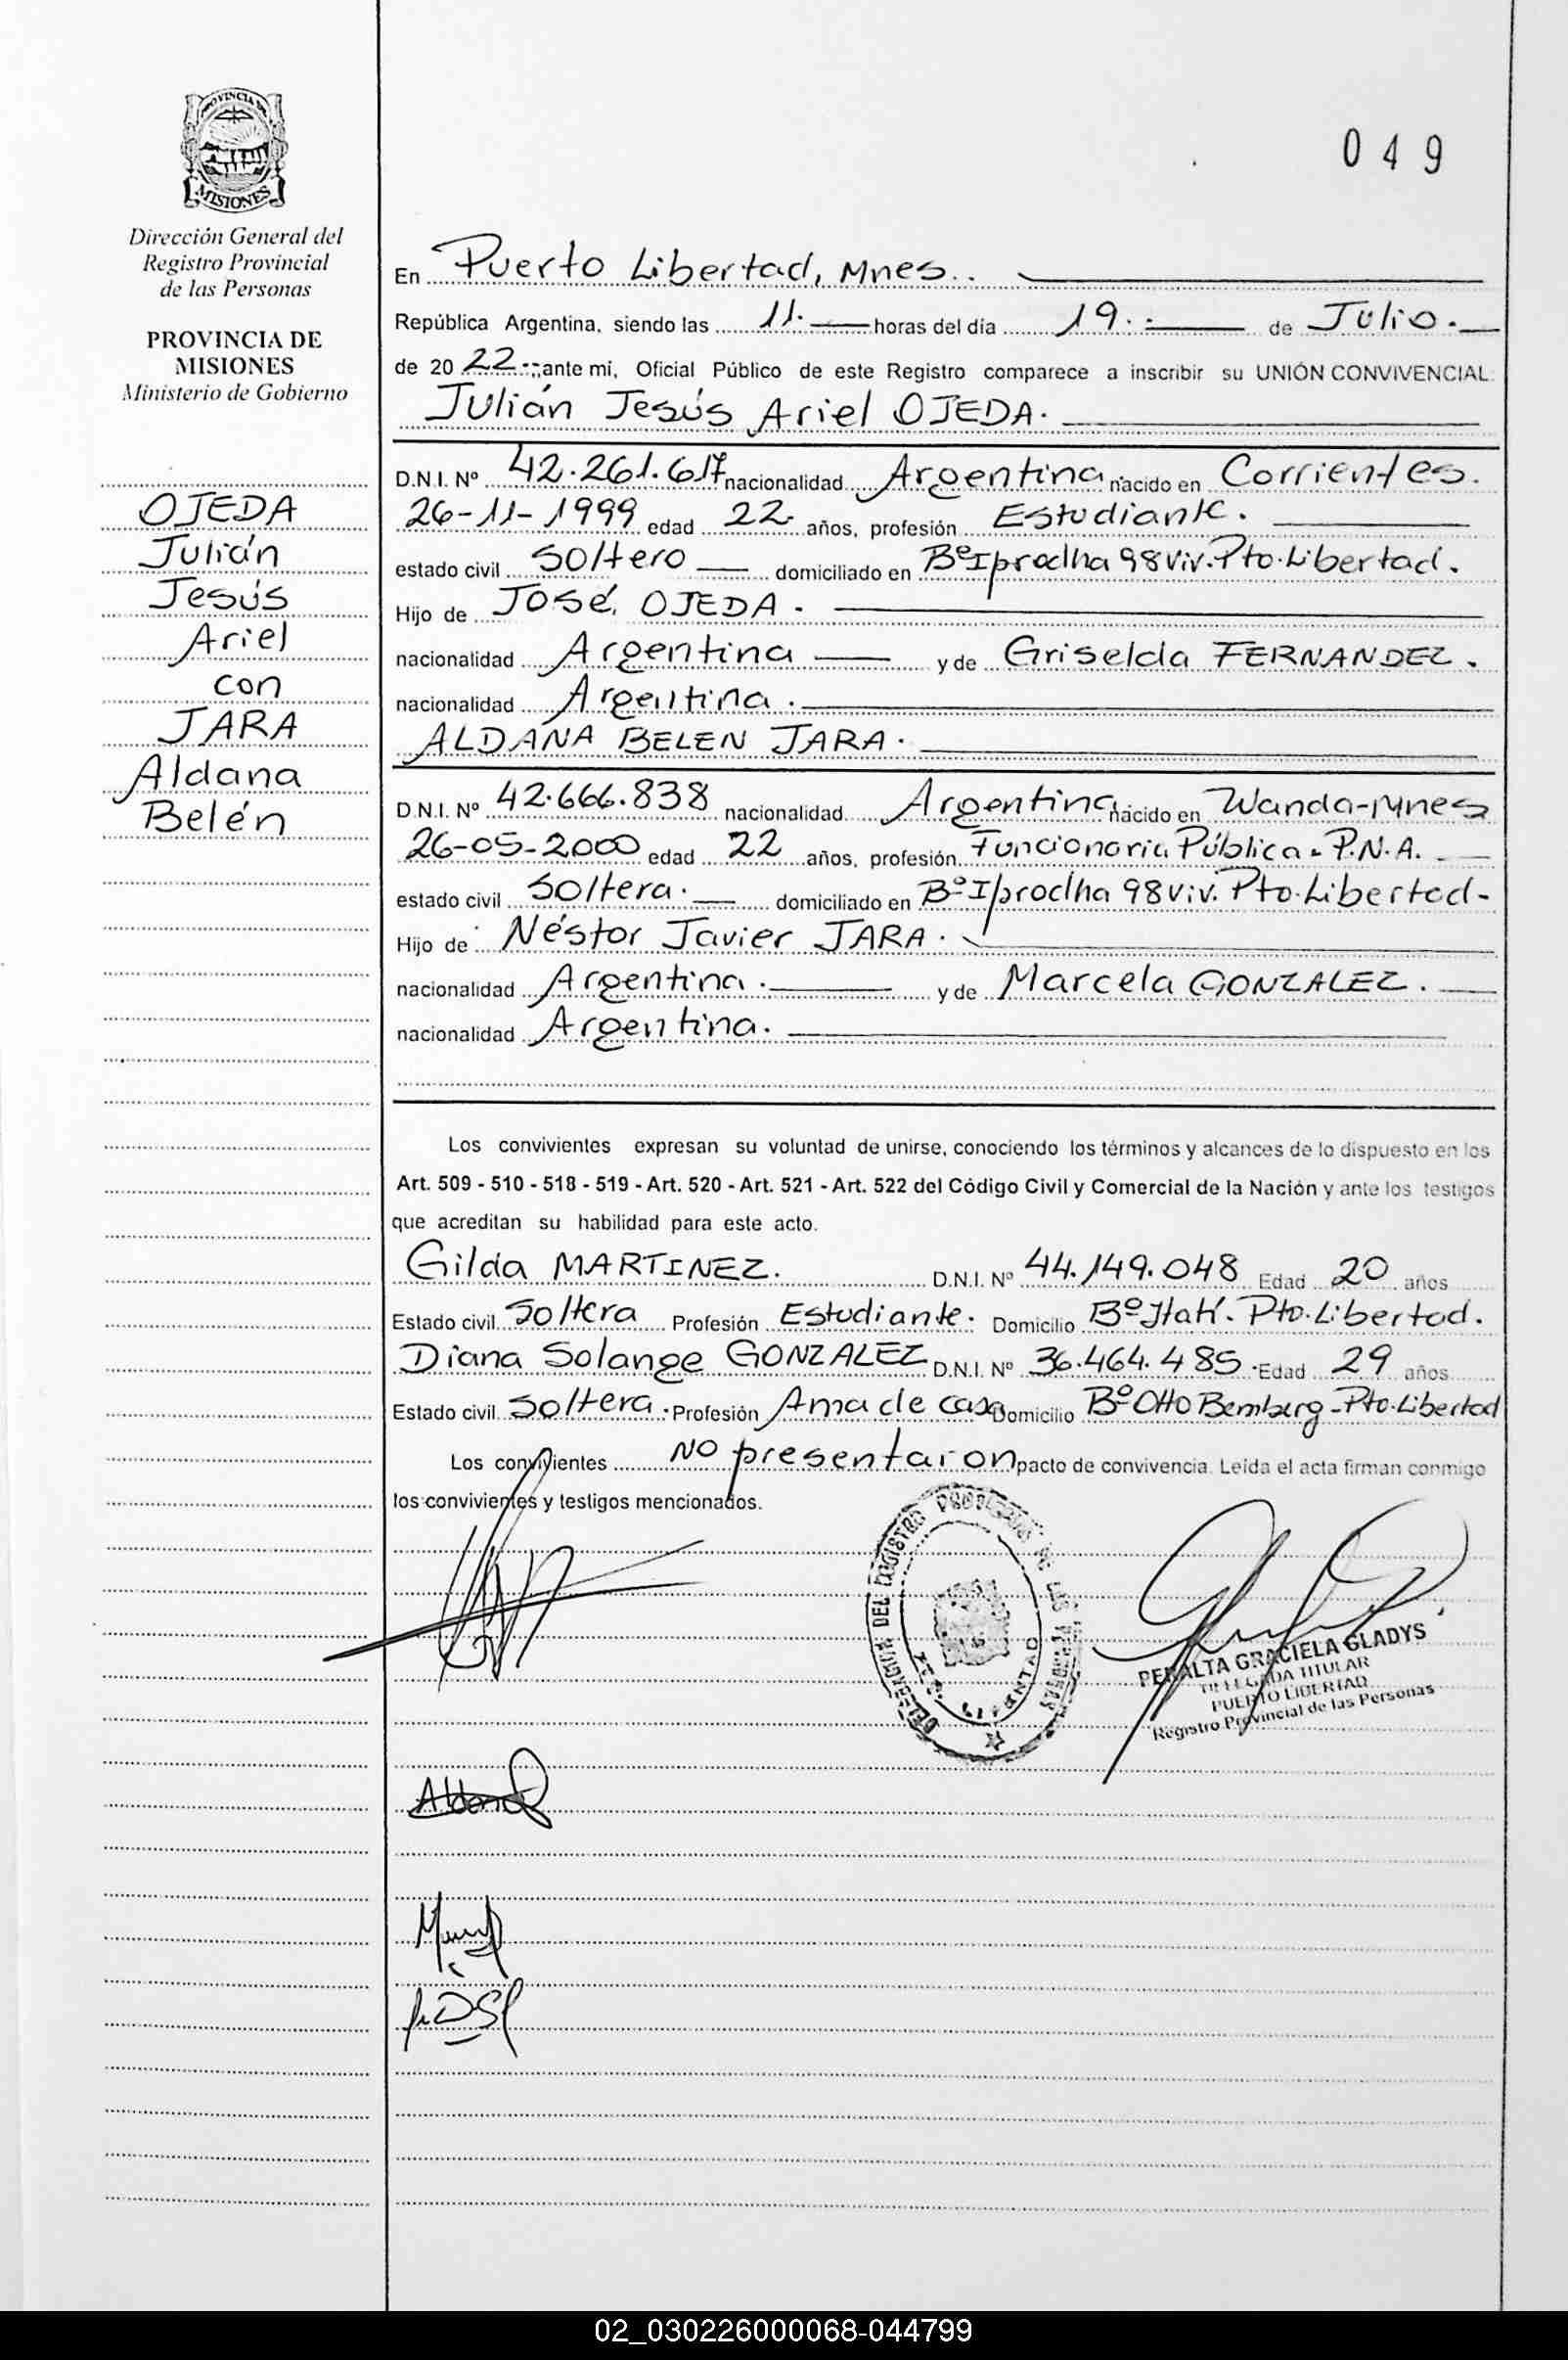 PROVINCIA DE
MISIONES
Dirección General del
Registro Provincial
de las Personas
PROVINCIA DE
MISIONES
Ministerio de Gobierno
OJEDA
Julián
Jesús
Ariel
con
JARA
Aldana
Belén
049
En Puerto Libertad, Mnes.
República Argentina, siendo las 11. horas del día 19. de Julio.
de 2022 ante mi, Oficial Público de este Registro comparece a inscribir su UNIÓN CONVIVENCIAL:
Julián Jesús Ariel OJEDA.
D.N.I. Nº 42.261.617 nacionalidad Argentina nacido en Corrientes.
26-11-1999 edad 22 años, profesión Estudiante.
estado civil Soltero domiciliado en Bº Iprodha 98 viv. Pto. Libertad.
Hijo de José OJEDA.
nacionalidad Argentina y de Griselda FERNANDEZ.
nacionalidad Argentina.
ALDANA BELEN JARA.
D.N.I. Nº 42.666.838 nacionalidad Argentina nacido en Wanda-Mnes
26-05-2000 edad 22 años, profesión Funcionaria Pública - P.N.A.
estado civil Soltera. domiciliado en Bº Iprodha 98 viv. Pto. Libertad-
Hijo de Néstor Javier JARA.
nacionalidad Argentina. y de Marcela GONZALEZ.
nacionalidad Argentina.
Los convivientes expresan su voluntad de unirse, conociendo los términos y alcances de lo dispuesto en los
Art. 509 - 510 - 518 - 519 - Art. 520 - Art. 521 - Art. 522 del Código Civil y Comercial de la Nación y ante los testigos
que acreditan su habilidad para este acto.
Gilda MARTINEZ. D.N.I. Nº 44.149.048 Edad 20 años
Estado civil Soltera Profesión Estudiante. Domicilio Bº Itatí. Pto. Libertad.
Diana Solange GONZALEZ D.N.I. Nº 36.464.485. Edad 29 años
Estado civil Soltera. Profesión Ama de casa Domicilio Bº Otto Bemberg - Pto. Libertad
Los convivientes NO presentaron pacto de convivencia. Leída el acta firman conmigo
los convivientes y testigos mencionados.
PERALTA GRACIELA GLADYS
DELEGADA TITULAR
PUERTO LIBERTAD
Registro Provincial de las Personas
Aldana
02_030226000068-044799